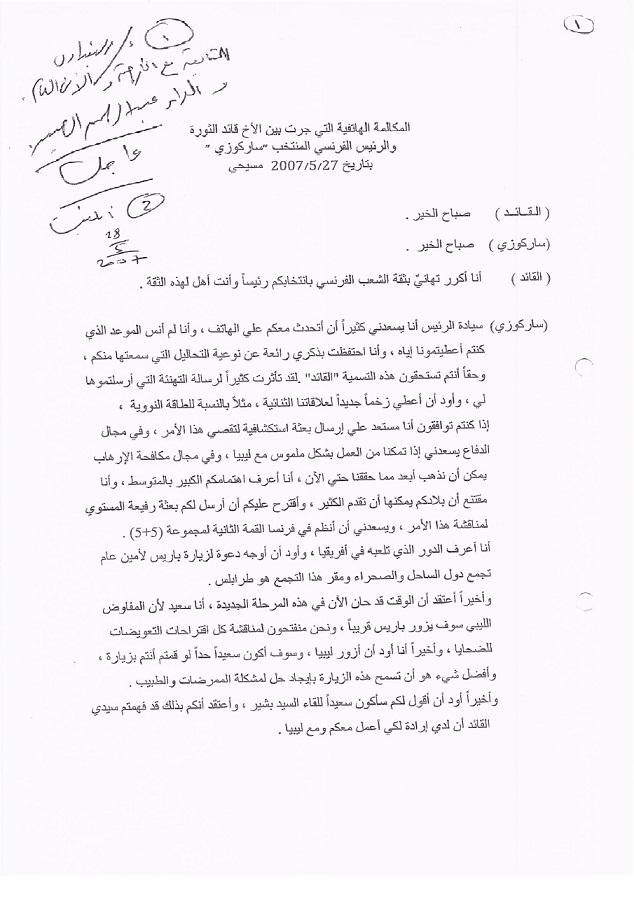 ١
١
المتابعة مع الخارجية والأمن العام
عاجل
2
28
5
2007
المكالمة الهاتفية التي جرت بين الأخ قائد الثورة
والرئيس الفرنسي المنتخب "ساركوزي "
بتاريخ 2007/5/27 مسيحي
( القــائــد ) صباح الخير .
(ساركوزي ) صباح الخير .
( القائد ) أنا أكرر تهانيّ بثقة الشعب الفرنسي بانتخابكم رئيساً وأنت أهل لهذه الثقة .
(ساركوزي) سيادة الرئيس أنا يسعدني كثيراً أن أتحدث معكم علي الهاتف ، وأنا لم أنس الموعد الذي
كنتم أعطيتمونا إياه ، وأنا احتفظت بذكري رائعة عن نوعية التحاليل التي سمعتها منكم ،
وحقاً أنتم تستحقون هذه التسمية "القائد" .لقد تأثرت كثيراً لرسالة التهنئة التي أرسلتموها
لي ، وأود أن أعطي زخماً جديداً لعلاقاتنا الثنائية ، مثلاً بالنسبة للطاقة النووية ،
إذا كنتم توافقون أنا مستعد علي إرسال بعثة استكشافية لتقصي هذا الأمر ، وفي مجال
الدفاع يسعدني إذا تمكنا من العمل بشكل ملموس مع ليبيا ، وفي مجال مكافحة الإرهاب
يمكن أن نذهب أبعد مما حققنا حتي الآن ، أنا أعرف اهتمامكم الكبير بالمتوسط ، وأنا
مقتنع أن بلادكم يمكنها أن تقدم الكثير ، وأقترح عليكم أن أرسل لكم بعثة رفيعة المستوي
لمناقشة هذا الأمر ، ويسعدني أن أنظم في فرنسا القمة الثانية لمجموعة (5+5) .
أنا أعرف الدور الذي تلعبه في أفريقيا ، وأود أن أوجه دعوة لزيارة باريس لأمين عام
تجمع دول الساحل والصحراء ومقر هذا التجمع هو طرابلس .
وأخيراً أعتقد أن الوقت قد حان الآن في هذه المرحلة الجديدة ، أنا سعيد لأن المفاوض
الليبي سوف يزور باريس قريباً ، ونحن منفتحون لمناقشة كل اقتراحات التعويضات
للضحايا ، وأخيراً أنا أود أن أزور ليبيا ، وسوف أكون سعيداً حداً لو قمتم أنتم بزيارة ،
وأفضل شيء هو أن تسمح هذه الزيارة بإيجاد حل لمشكلة الممرضات والطبيب .
وأخيراً أود أن أقول لكم سأكون سعيداً للقاء السيد بشير ، وأعتقد أنكم بذلك قد فهمتم سيدي
القائد أن لدي إرادة لكي أعمل معكم ومع ليبيا .